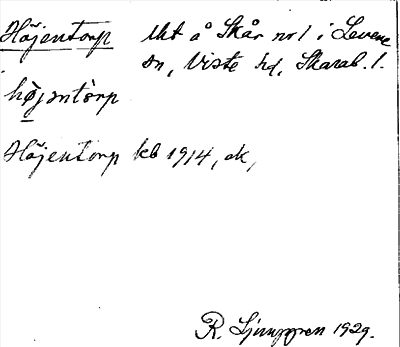 Höjentorp lht å Skår nr 1 i Levene
sn, Viste hd, Skarab. l.
hö̀jəntòrp
Höjentorp kb 1914, ek,
R. Ljunggren 1929.